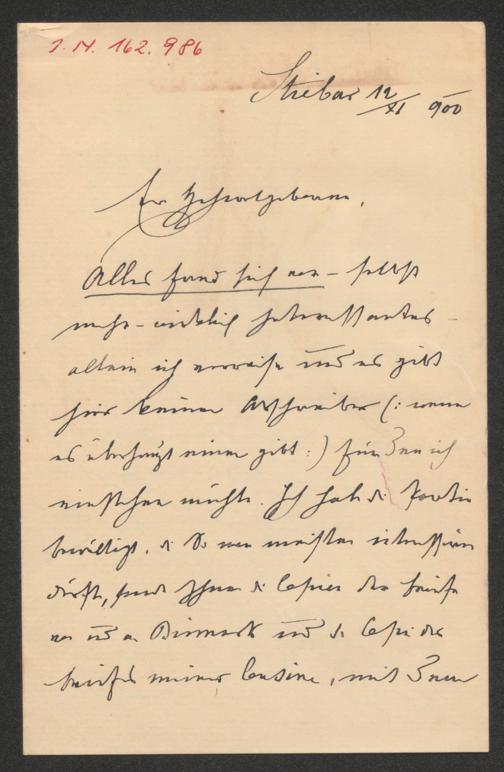 J. N. 162.986
Stiebar 12/XI 900
Ew Hochwolgeboren,
Alles fand sich vor – selbst
mehr – wirklich Interessantes –
allein ich verreise und es gibt
hier keinen Abschreiber (: wenn
es überhaupt einen gibt :) für den ich
einstehen möchte. Ich habe die Partie
bewältigt, die Sie am meisten interessiren
dürfte, sende Ihnen die Copien der Briefe
von und an Bismarck und die Copie des
Briefes meiner Cousine, mit dem